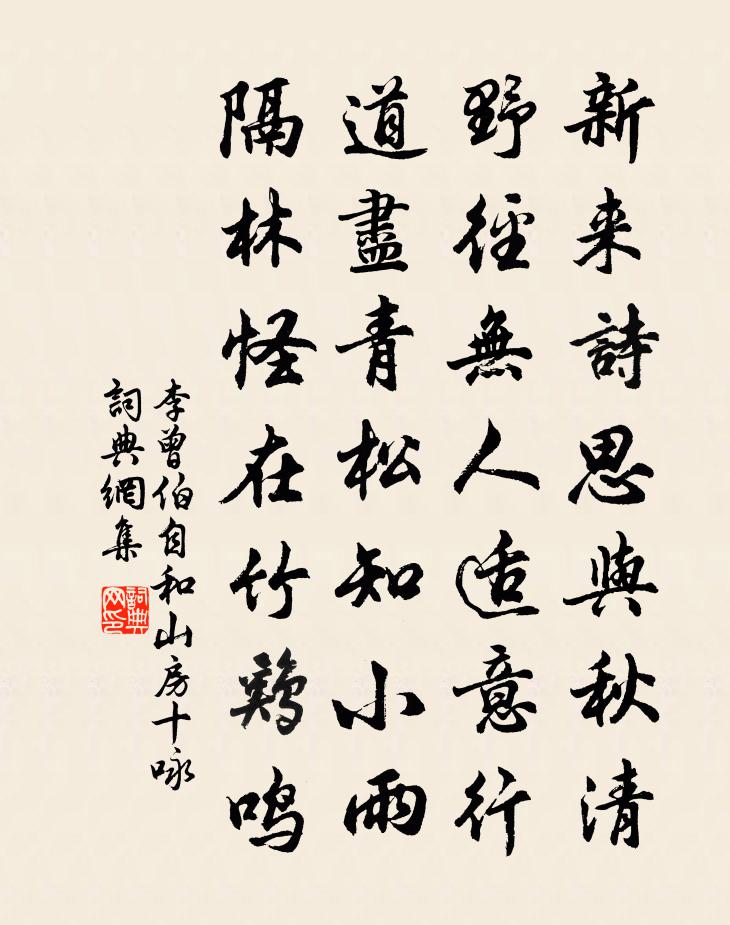 新来詩思與秋清
野徑無人適意行
道盡青松知小雨
隔林怪在竹鷄鳴
李曾伯自和山房十咏
詞典網集
詞典网印